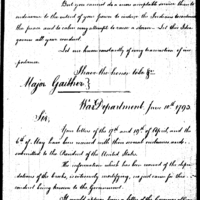 But you cannot do a more acceptable service than to
endeavor to the extent of your power to induce the Indians to
the peace and to calm any attempt to cause a storm. Let this
govern all your conduct.
Let me hear constantly of any transaction of im-
portance.
I have the honor to be &c
Major Gaither
War Department, June 10th, 1793
Sir,
Your letter of the 17 and 19th of April, and the
6th of May have been received with their several enclosures and
submitted to the President of the United States.
The information which has been received of the dep-
redations of the Creeks, evidently conflicting, required some for this
conduct being known to the Government.
It would appear from a letter of the